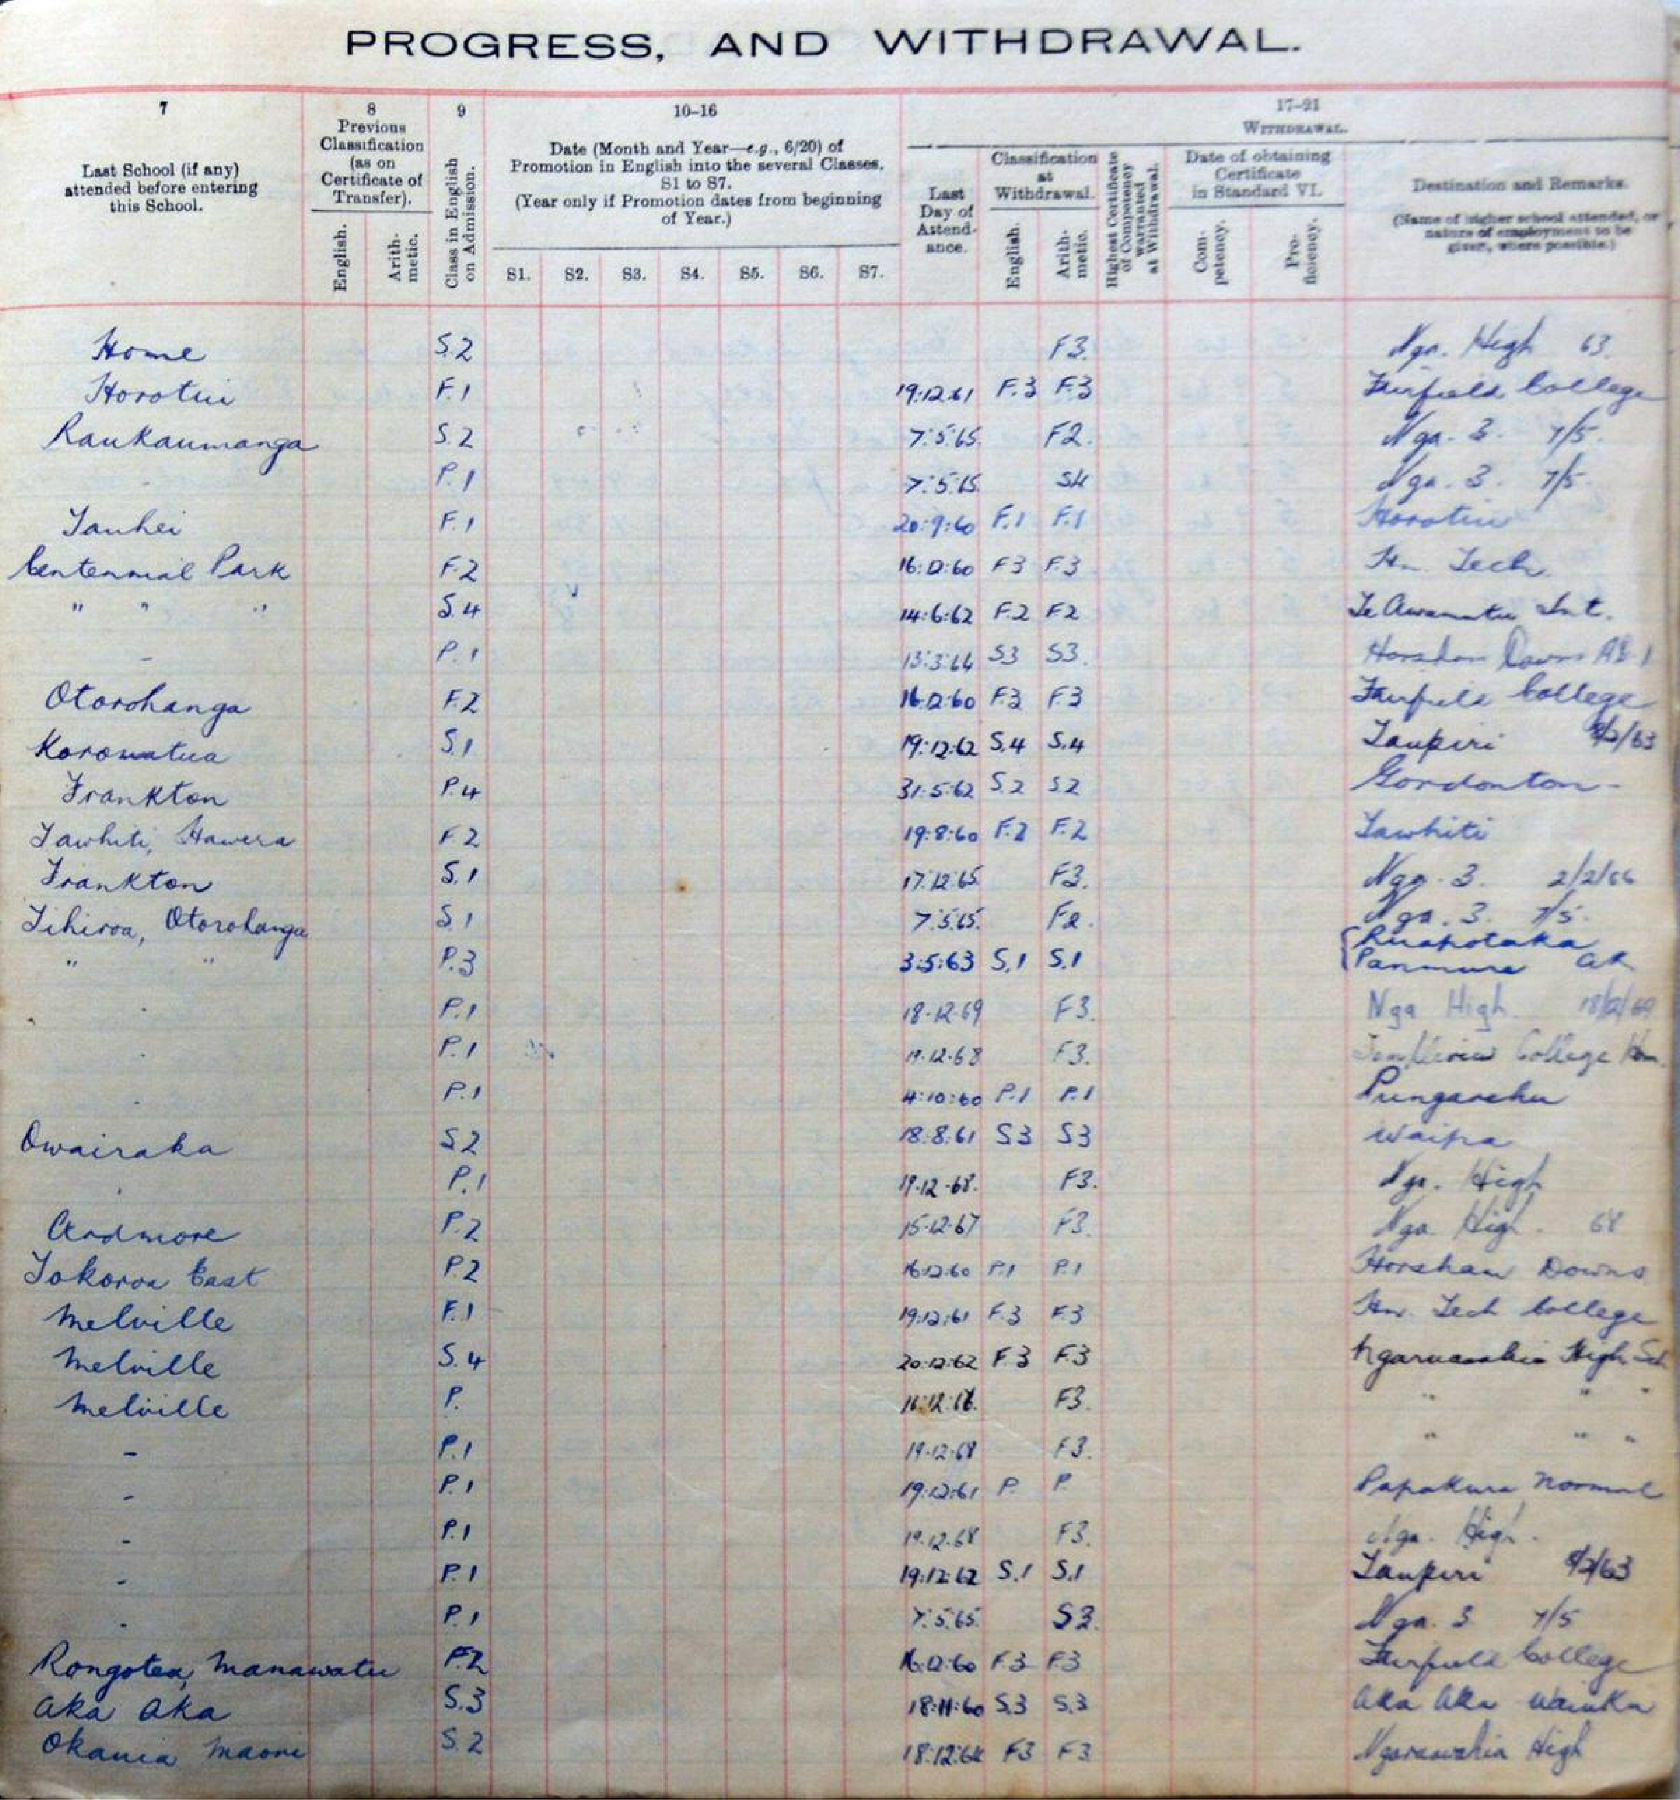 PROGRESS, AND WITHDRAWAL.
7
Last School (if any)
attended before entering
this School.
8
Previous
Classification
(as on
Certificate of
Transfer).
English.
Arith-
metic.
9
Class in English
on Admission.
10–16
Date (Month and Year—e.g., 6/20) of
Promotion in English into the several Classes.
S1 to S7.
(Year only if Promotion dates from beginning
of Year.)
S1. S2. S3. S4. S5. S6. S7.
17–21
WITHDRAWAL.
Last
Day of
Attend-
ance.
Classification
at
Withdrawal.
English.
Arith-
metic.
Highest Certificate
of Competency
warranted
at Withdrawal.
Date of obtaining
Certificate
in Standard VI.
Com-
petency.
Pro-
ficiency.
Destination and Remarks.
(Name of higher school attended, or
nature of employment to be
given, where possible.)
Home S.2 F3. Nga. High 63
Horotiu F.1 19:12:61 F.3 F.3 Fairfield College
Raukaumanga S.2 7:5:65. F2. Nga. 3. 7/5.
P.1 7:5:65. S4 Nga. 3. 7/5.
Tauhei F.1 20:9:60 F.1 F.1 Horotiu
Centennial Park F.2 16:12:60 F3 F.3 Hn. Tech.
" " " S.4 14:6:62 F.2 F2 Te Awamutu Int.
P.1 13:3:64 S3 S3. Horsham Downs
Otorohanga F.2 16:12:60 F.3 F3 Fairfield College
Korowatua S.1 19:12:62 S.4 S.4 Taupiri /2/63
Frankton P.4 31:5:62 S2 S2 Gordonton
Tawhiti, Hawera F.2 19:8:60 F.2 F.2 Tawhiti
Frankton S.1 17:12:65 F3. Nga. 3. 2/2/66
Tihiroa, Otorohanga S.1 7:5:65. F2. Nga. 3. 7/5.
" " P.3 3:5:63 S.1 S.1 Ruapotaka
Panmure Ak
P.1 18-12-69 F3. Nga High
P.1 19-12-68 F3. College Hm.
P.1 4:10:60 P.1 P.1 Pungarehu
Owairaka S2 18:8:61 S3 S3 Waipa
P.1 19-12-68. F3. Nga. High
Ardmore P.2 15-12-67 F3. Nga. High. 68
Tokoroa East P.2 16:12:60 P.1 P.1 Horsham Downs
Melville F.1 19:12:61 F.3 F.3 Hn. Tech College
Melville S.4 20:12:62 F.3 F.3 Ngaruawahia High Sch
Melville P. 16:12:66. F3. " " "
P.1 19-12-68 F3. " " "
P.1 19:12:61 P. P. Papakura Normal
P.1 19.12.68 F3. Nga. High.
P.1 19:12:62 S.1 S.1 Taupiri /2/63
P.1 7:5:65. S3. Nga. 3 7/5
Rongotea, Manawatu F.2 16:12:60 F3 F3 Fairfield College
Aka Aka S.3 18:11:60 S.3 S.3 Aka Aka Waiuku
Okauia Maori S.2 18:12:64 F3 F3 Ngaruawahia High